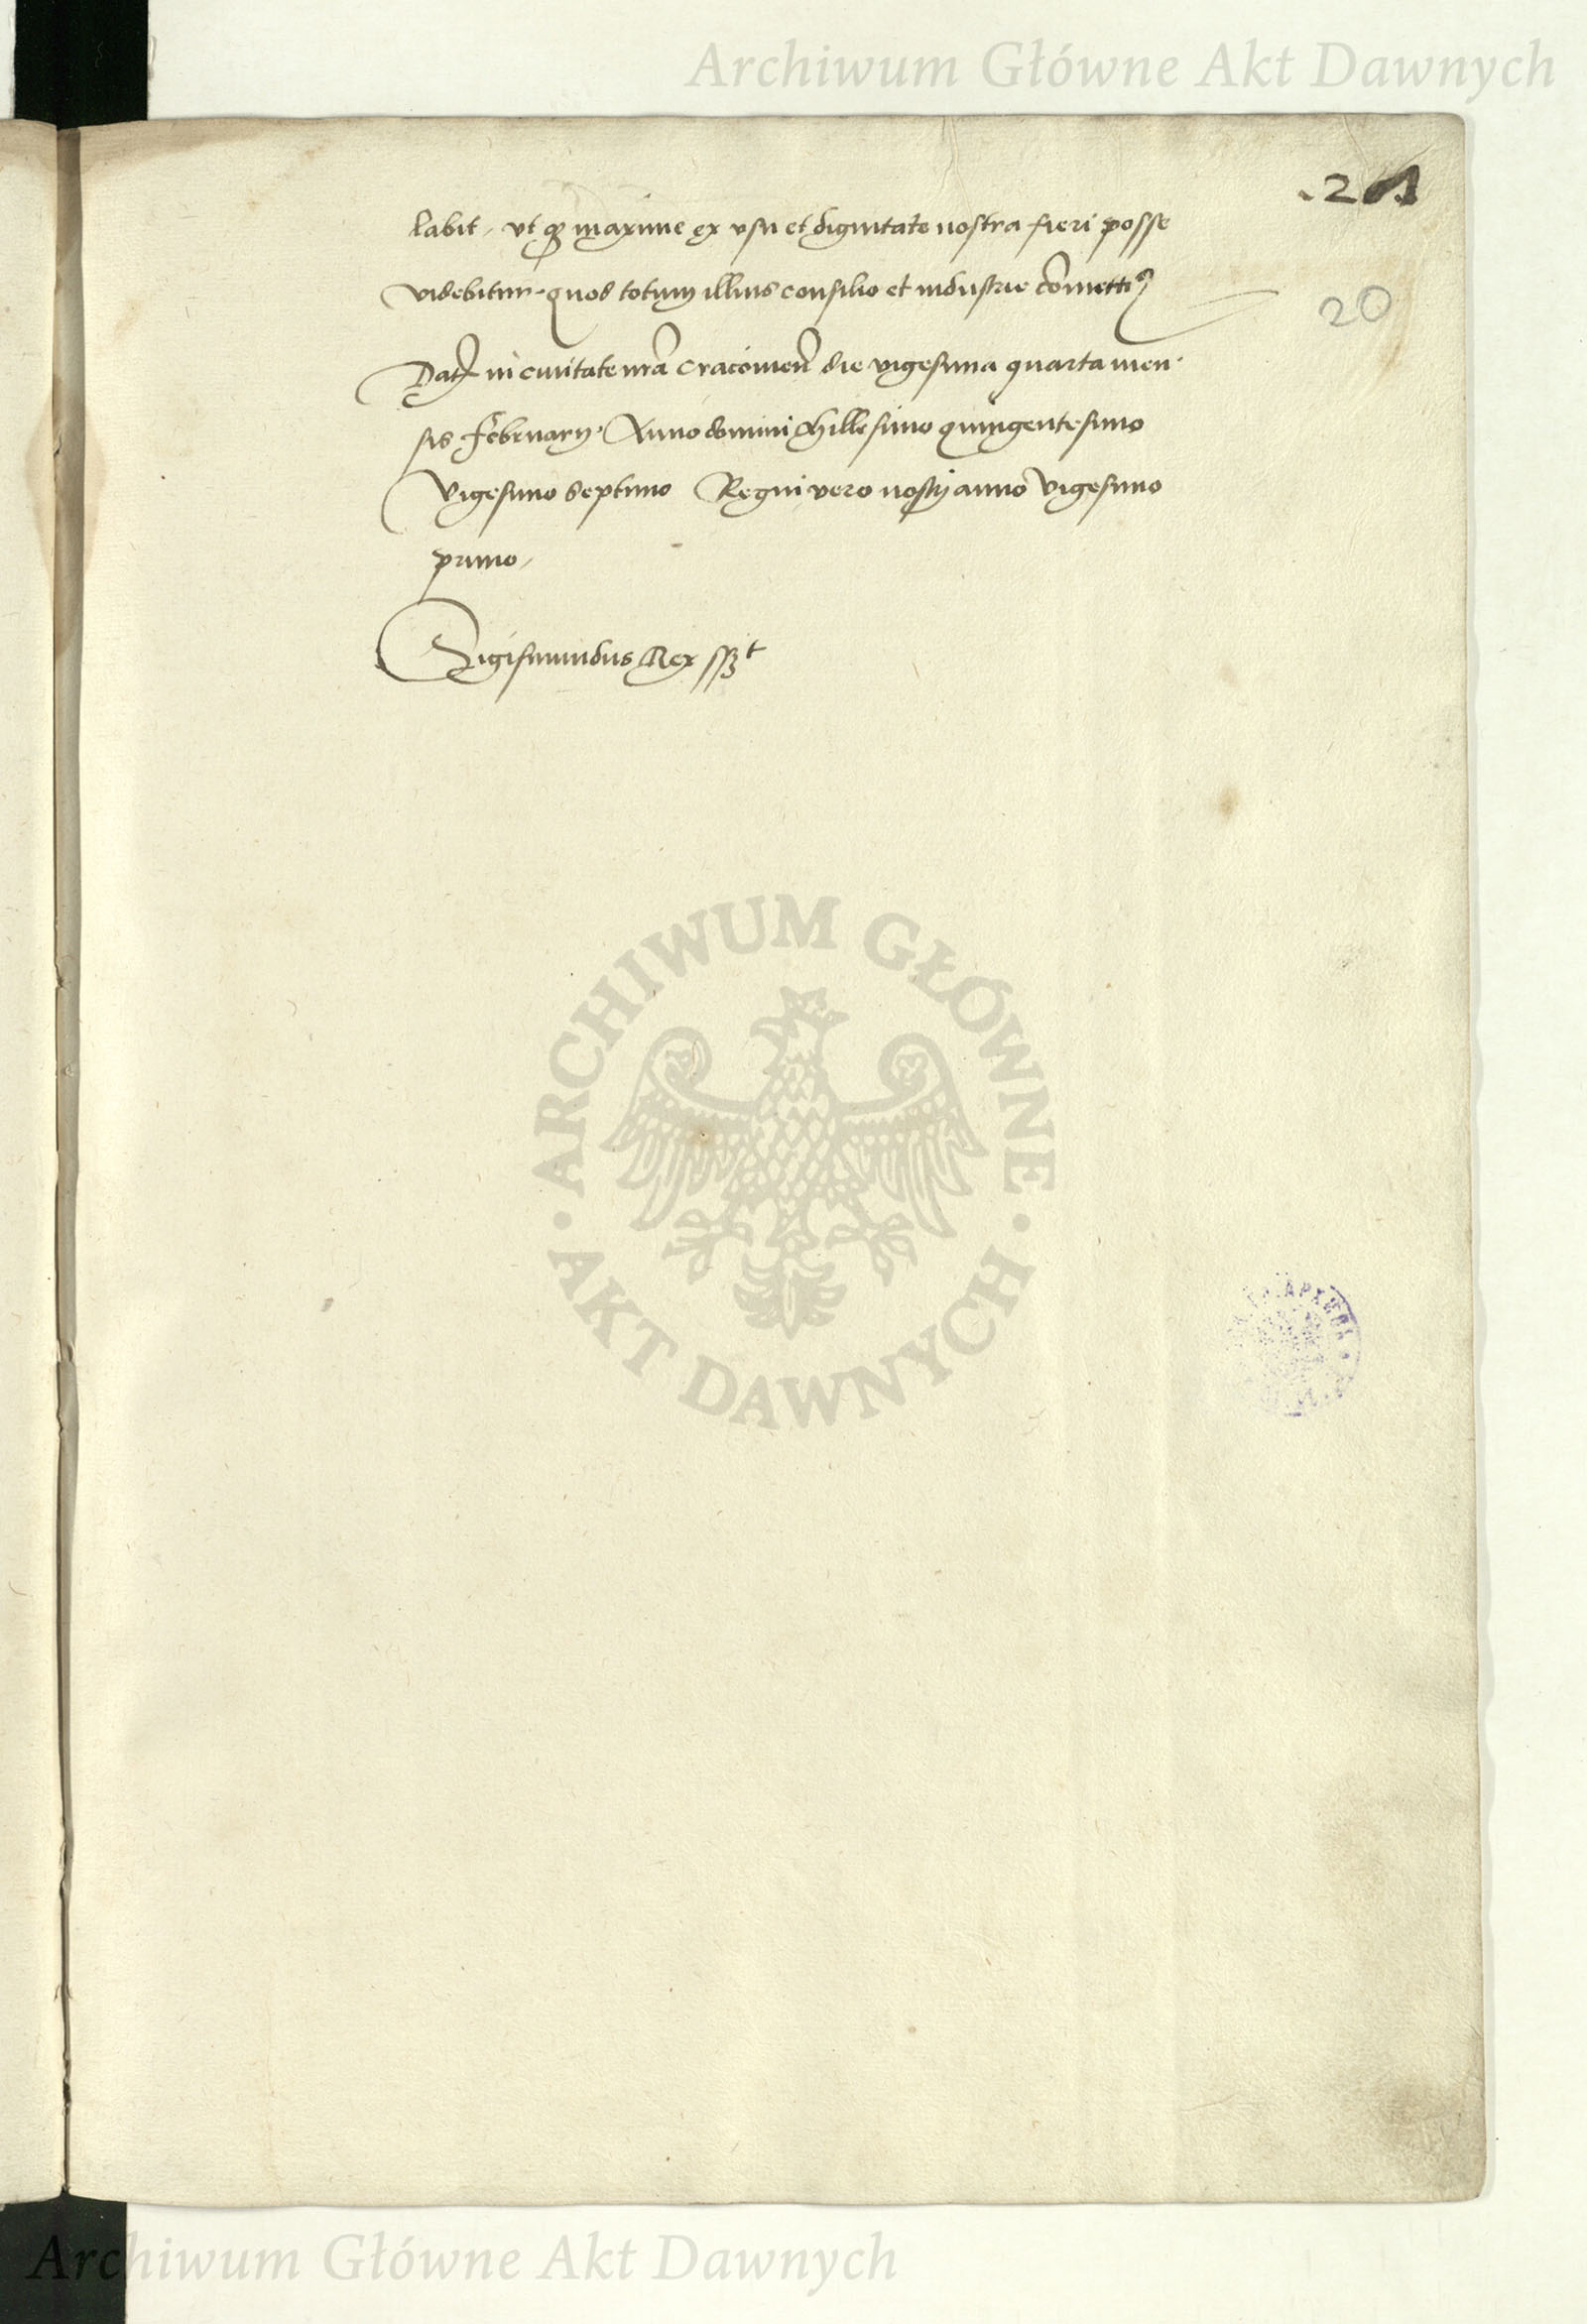 Archiwum Główne Akt Dawnych
labit, vt q maxime ex vsu et dignitate nostra fieri posse
20
videbitur. quod totum illius consilio et industrie cõmitti⁹
Dat in ciuitate nrã Cracouień die vigesima quarta men-
sis february. Anno domini Millesimo quingentesimo
vigesimo septimo Regni vero nostri anno vigesimo
primo,
Sigismundus Rex sszt
ARCHIWUM GŁÓWNE
AKT DAWNYCH
Archiwum Główne Akt Dawnych